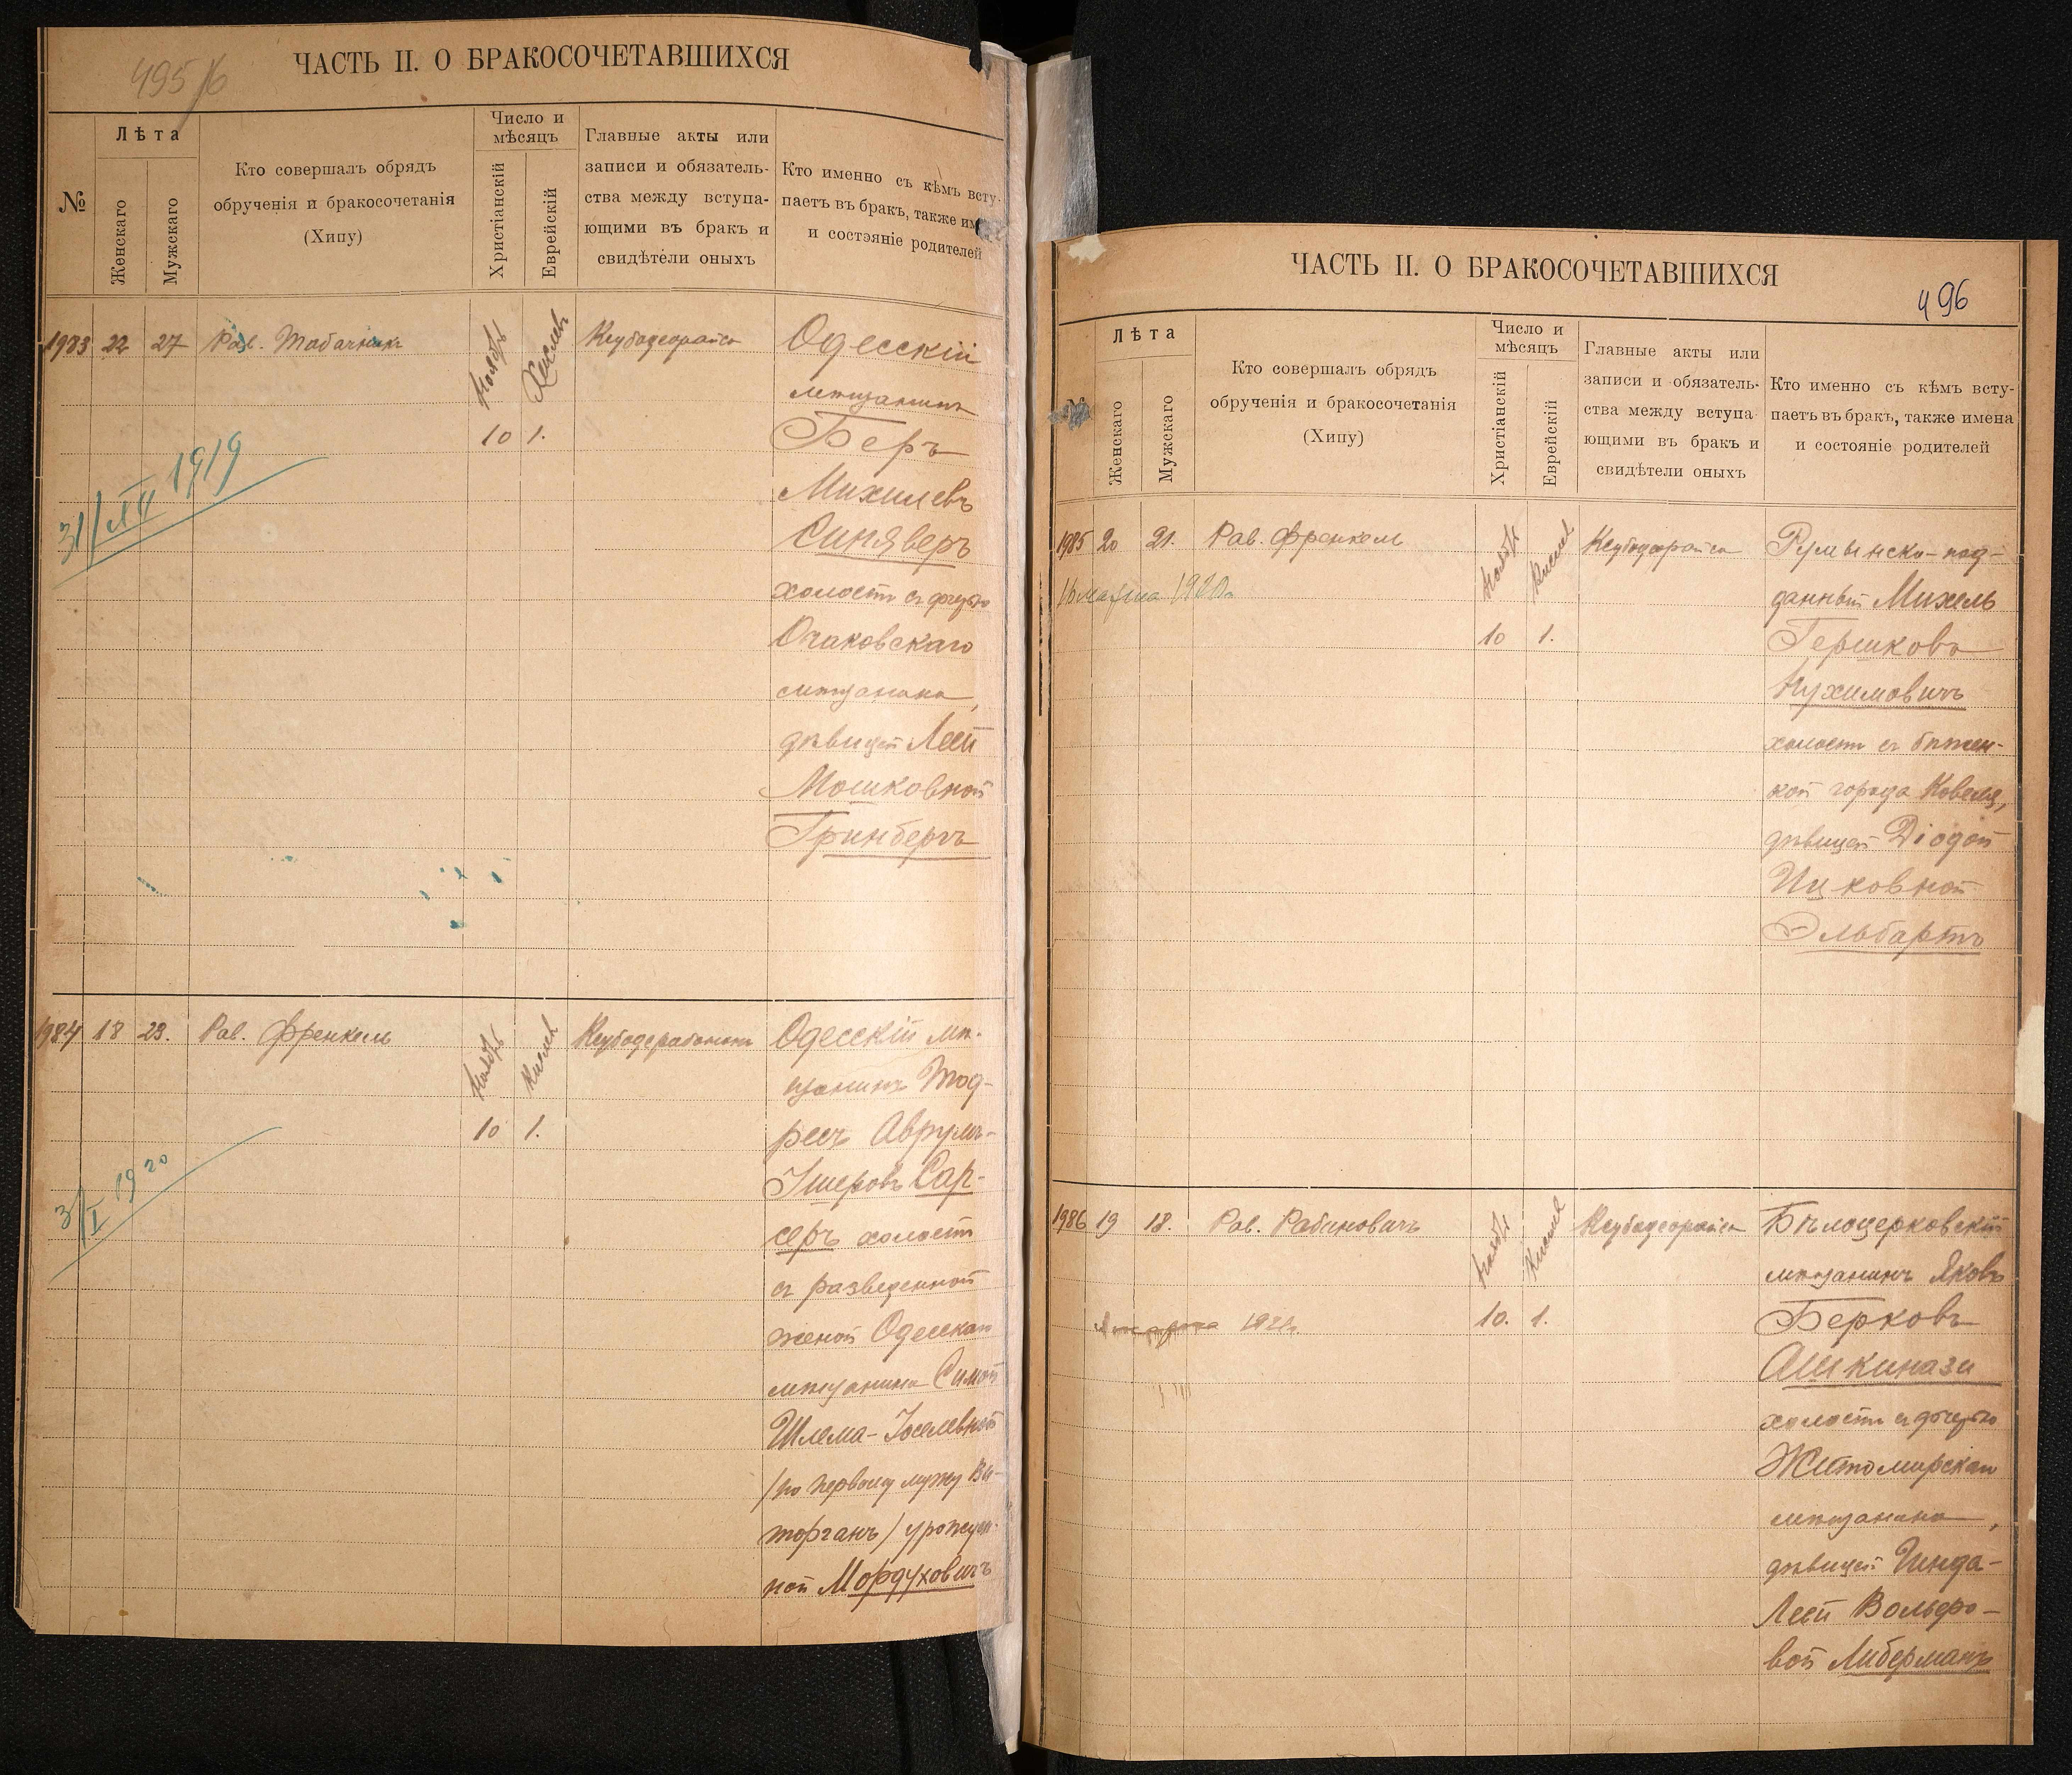 495/6
ЧАСТЬ II. О БРАКОСОЧЕТАВШИХСЯ
№
Лѣта
Женскаго
Мужскаго
Кто совершалъ обрядъ
обрученія и бракосочетанія
(Хипу)
Число и
мѣсяцъ
Христіанскій
Еврейскій
Главные акты или
записи и обязатель-
ства между вступа-
ющими въ бракъ и
свидѣтели оныхъ
Кто именно съ кѣмъ всту-
паетъ въ бракъ, также им
и состояніе родителей
1983 22 27 Рав. Табачникъ
Ноябрь
Кислевъ
10 1.
31/XII 1919
Одесскій
мѣщанинъ
Беръ
Михилевъ
Синяверъ
холостъ съ дочерью
Очаковскаго
мѣщанина,
дѣвицей Леей
Мошковной
Гринбергъ
1984 18 23. Рав. Френкель
Ноябрь
Кислев
10 1.
3/I 1920
Одесскій мѣ-
щанинъ Тод-
ресъ Аврумъ-
Ишеровъ Сар-
серъ холостъ
съ разведенной
женой Одесскаго
мѣщанина Симой
Шлема-Іоселевной
/по первому мужу Ви-
торганъ/ урожден-
ной Мордуховичъ
ЧАСТЬ II. О БРАКОСОЧЕТАВШИХСЯ
496
№
Лѣта
Женскаго
Мужскаго
Кто совершалъ обрядъ
обрученія и бракосочетанія
(Хипу)
Число и
мѣсяцъ
Христіанскій
Еврейскій
Главные акты или
записи и обязатель-
ства между вступа
ющими въ бракъ и
свидѣтели оныхъ
Кто именно съ кѣмъ всту-
паетъ въ бракъ, также имена
и состояніе родителей
1985 20 21. Рав. Френкель
16 марта 1920г.
Ноябрь
Кислев
10 1.
Румынско-под-
данный Михель
Гершковъ
Нухимовичъ
холостъ съ бѣжен-
кой города Ковеля,
дѣвицей Діодей
Ицковной
Эльбартъ
1986 19 18. Рав. Рабиновичъ
Ноябрь
Кислев
10. 1.
Бѣлоцерковскій
мѣщанинъ Яковъ
Берковъ
Ашкинази
холостъ съ дочерью
Житомирскаго
мѣщанина,
дѣвицей Гинда-
Леей Вольфо-
вой Либерманъ